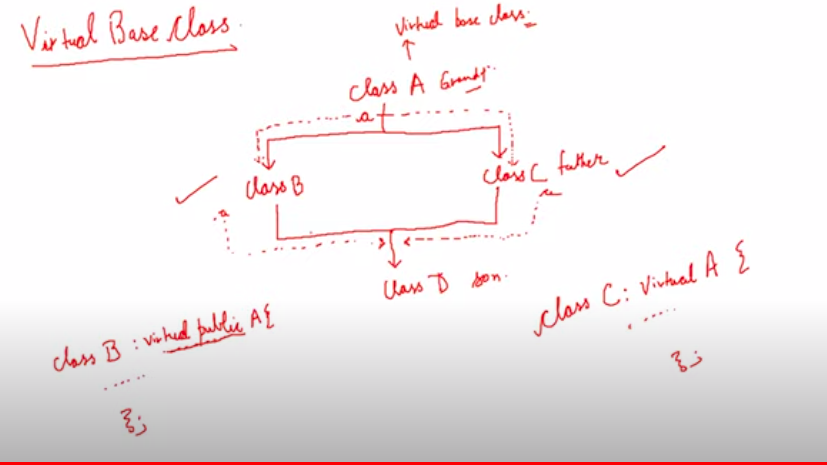 Virtual Base Class.
virtual base class.
Class A Grandf.
a
class B
class C father
a
a
class D son.
class B : virtual public A {
......
};
class C : virtual A {
......
};